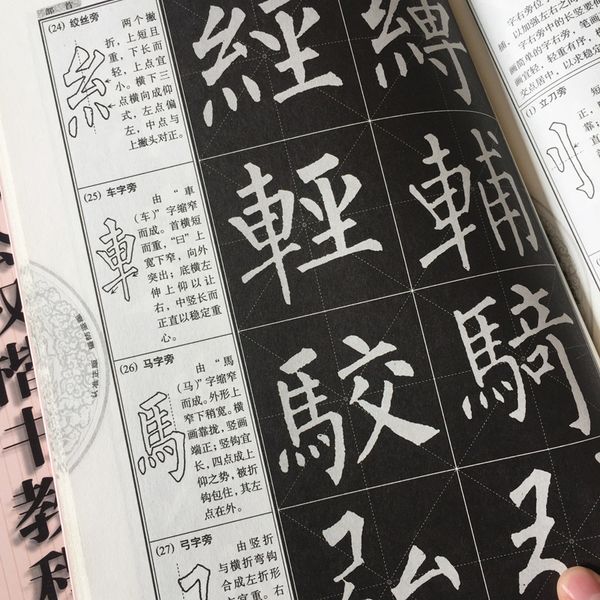 部首
(24) 绞丝旁
两个撇
折，上短且
重，下长而
轻，上点宜
小。横下三
点横向成仰
式，左点偏
左，中点与
上撇头对正。
糹
經 縛
(25) 车字旁
由“車
(车)”字缩窄
而成。首横短
而重，“曰”上
宽下窄，向外
突出；底横左
伸上仰以让
右，中竖长而
正直以稳定重
心。
車
輕 輔
(26) 马字旁
由“馬
(马)”字缩窄
而成。外形上
窄下稍宽。横
画靠拢，竖画
端正；竖钩宜
长，四点成上
仰之势，被折
钩包住，其左
点在外。
馬
駮 騎
(27) 弓字旁
由竖折
与横折弯钩
合成左折形
字右旁位
捕，以加强左右之间
字右旁中的长竖要
画简单的字右旁，笔画
画宜轻，轻重有序，
交点居中，以求稳定
(1) 立刀旁
刂
汉楷书教程